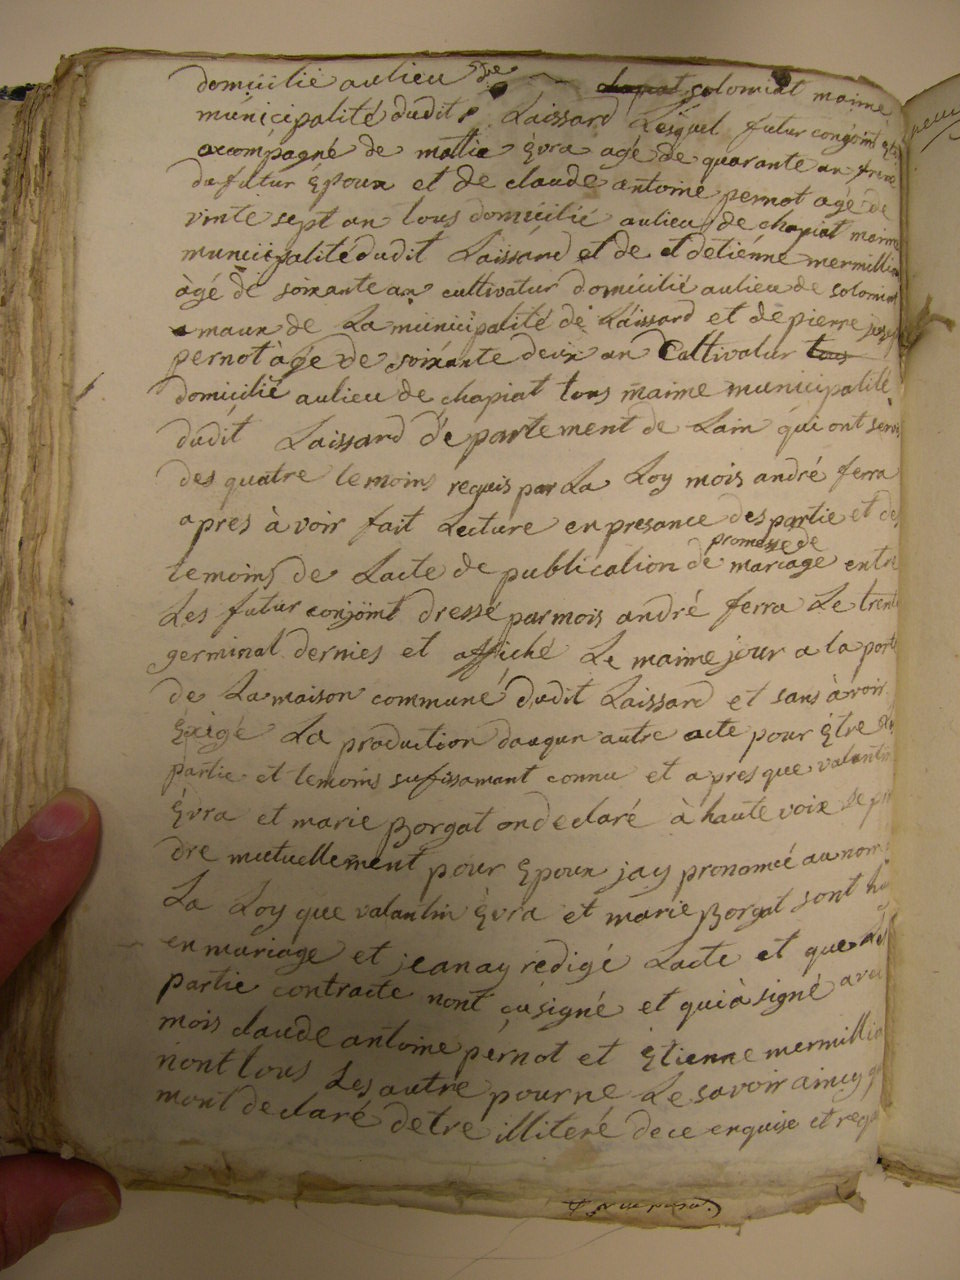 domicilié aulieu de chapiat solomiat maime
municipalité dudit Laissard Lesquel futur congoint Et
accompagné de mattie Èvra agé de quarante an frere
du futur Epoux et de claude antoine pernot agé de
vinte sept an tous domicilié aulieu de chapiat maime
municipalité dudit Laissard et de et detiénne mermillio
àgé de soixante an cultivatur domicilié aulieu de solomiat
maux de La municipalité de Laissard et de pierre josep
pernot àgé de soixante deux an Cultivatur tous
domicilié aulieu de chapiat tous maime municipalité
dudit Laissard departement de Lain qui ont servis
des quatre temoins requis par La Loy mois andré ferra
apres à voir fait Lecture en presance des partie et des
promesse de
temoins de Lacte de publication de mariage entre
Les futur conjoint dressé par mois andré ferra Le trente
germinal dernies et affiché Le maime jour a la porte
de La maison communé dudit Laissard et sans àvoir
Exigé La production daugun autre acte pour Être
partie et temoins suffissamant connu et apres que valantin
Èvra et marie Borgat on declaré à haute voix se pren
dre mutuellement pour Epoux jay pronomcé au nom
La Loy que valantin Èvra et marie Borgat sont
en mariage et jeanay redigé Lacte et que Les
partie contracte nont çu signé et qui à signé avec
mois claude antoine pernot et Etienne mermillio
nont tous Les autre pour ne Le savoir aincy
mont declaré detre illiteré de ce enquise et requi